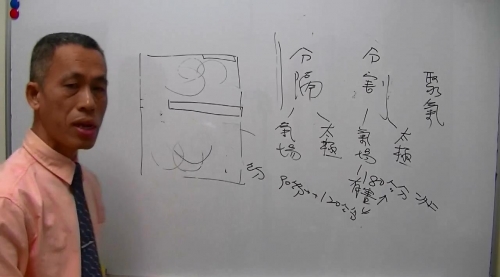 分隔
分割
聚氣
氣場
太極
氣場
太極
90公分~120公分
180公分